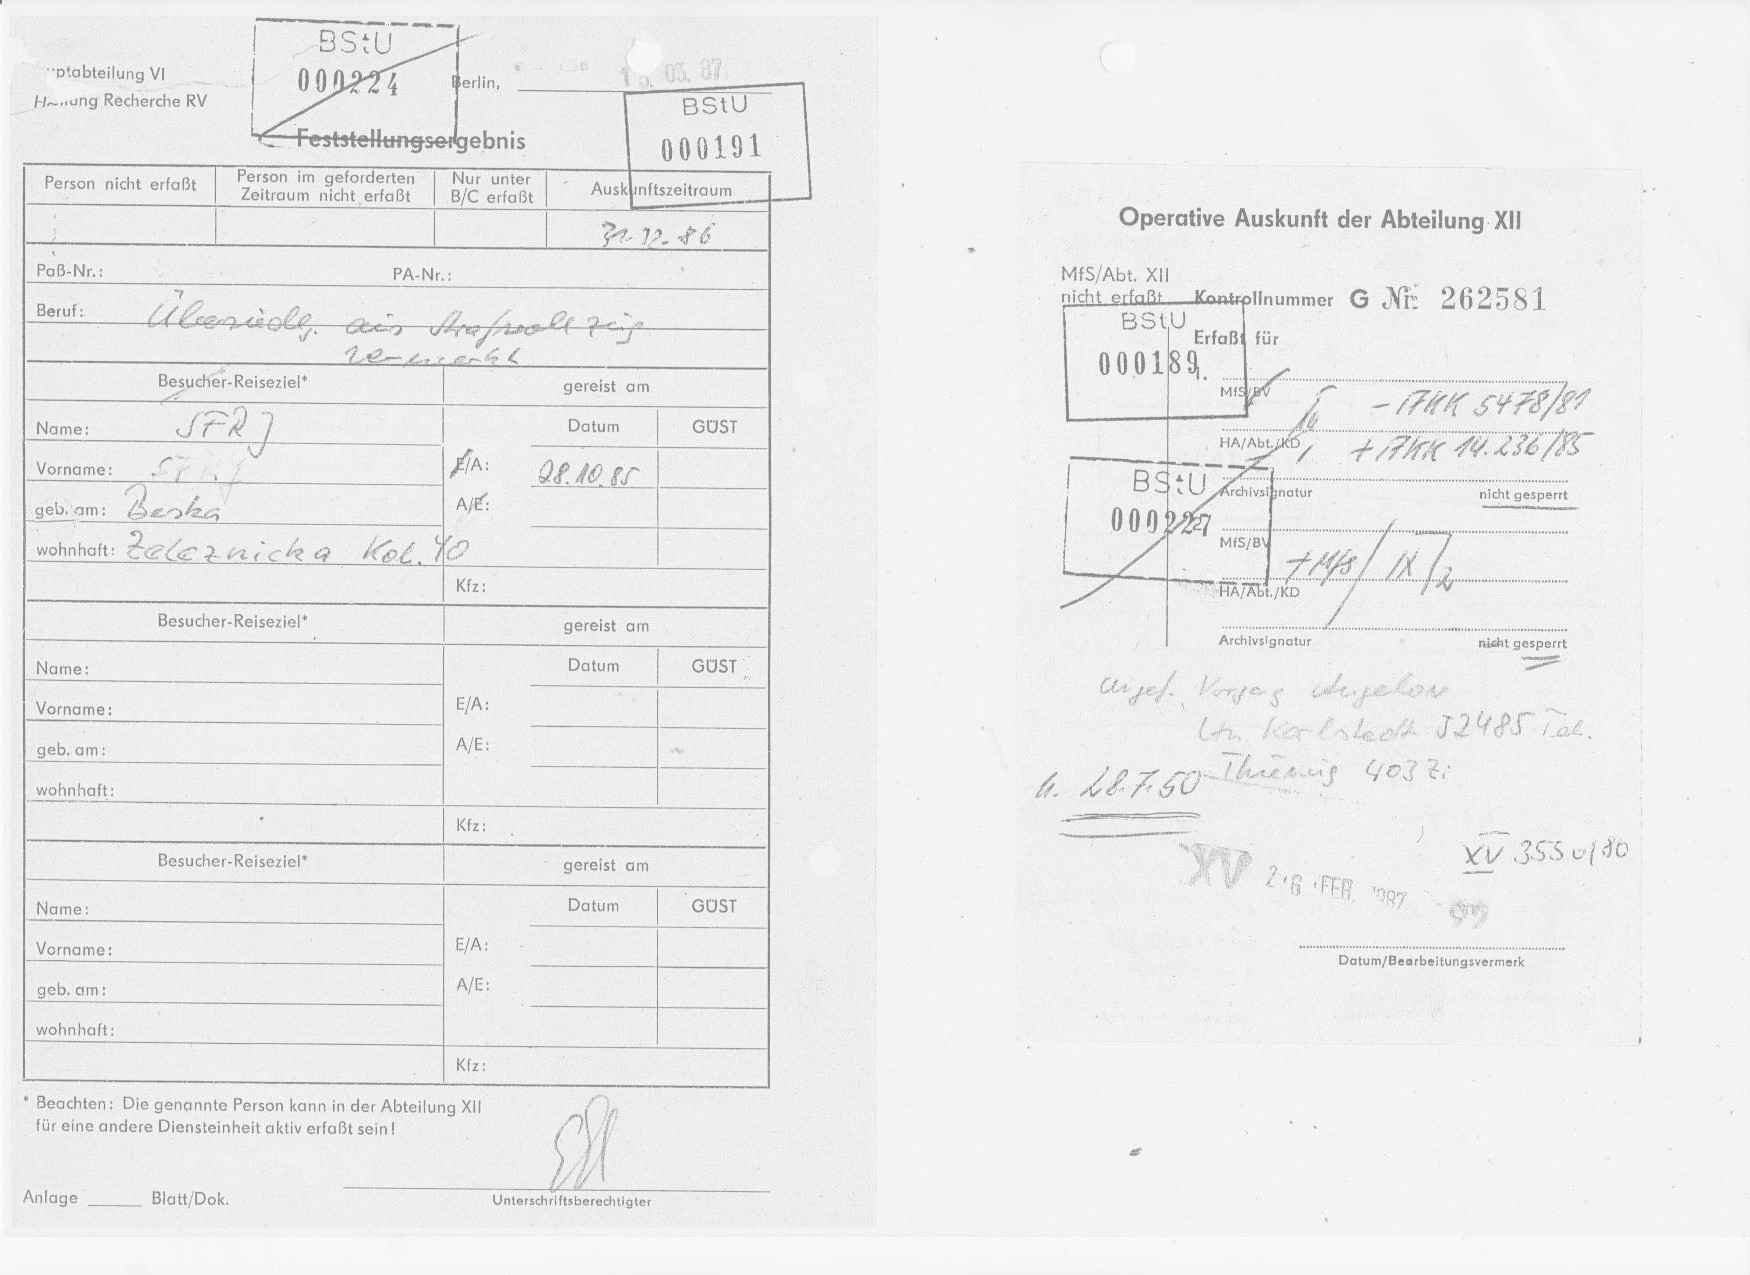 BStU
000224
ptabteilung VI
Berlin,
03. 87
Recherche RV
BStU
000191
Feststellungsergebnis
Person nicht erfaßt
Person im geforderten Zeitraum nicht erfaßt
Nur unter B/C erfaßt
Auskunftszeitraum
31.12.86
Paß-Nr.:
PA-Nr.:
Beruf: Übersiedlg. aus Strafvollzug
vermerkt
Besucher-Reiseziel*
gereist am
Name: SFRJ
Datum
GÜST
Vorname: SFRJ
E/A: 28.10.85
geb. am: Beska
A/E:
wohnhaft: Zeleznicka Kol. 40
Kfz:
Besucher-Reiseziel*
gereist am
Name:
Datum
GÜST
Vorname:
E/A:
geb. am:
A/E:
wohnhaft:
Kfz:
Besucher-Reiseziel*
gereist am
Name:
Datum
GÜST
Vorname:
E/A:
geb. am:
A/E:
wohnhaft:
Kfz:
* Beachten: Die genannte Person kann in der Abteilung XII
für eine andere Diensteinheit aktiv erfaßt sein!
Anlage
Blatt/Dok.
Unterschriftsberechtigter
Operative Auskunft der Abteilung XII
MfS/Abt. XII
nicht erfaßt
Kontrollnummer G Nr. 262581
BStU
Erfaßt für
000189
1.
MfS/BV
- 17KK 5478/81
HA/Abt./KD
+ 17KK 14.236/85
BStU
Archivsignatur
nicht gesperrt
000227
2.
MfS/BV
+ MfS / IX / 2
HA/Abt./KD
Archivsignatur
nicht gesperrt
Vorgang Angelov
Ltn Karlstedt 52485 Tel.
Thiemig 403 Zi
28.7.50
XV 3550/80
XV 26. FEB. 1987
Datum/Bearbeitungsvermerk